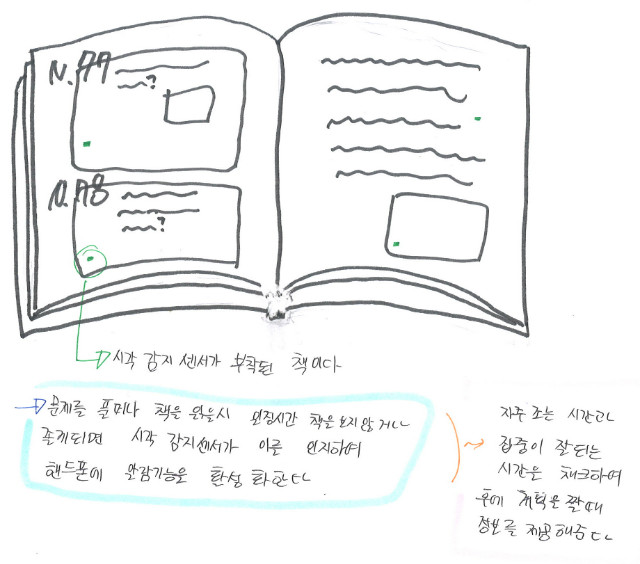 N.77
?
N.78
?
시각 감지 센서가 부착된 책이다
문제를 풀거나 책을 읽을시 일정시간 책을 보지 않거나
졸게되면 시각 감지센서가 이를 인지하여
핸드폰에 알람기능을 활성 화한다
자주 조는 시간과
집중이 잘되는
시간을 체크하여
후에 계획을 짤때
정보를 제공해준다